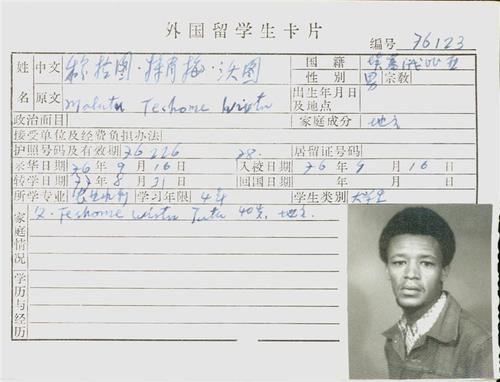 外国留学生卡片
编号 76123
姓 中文 穆拉图·特肖梅·沃图 国籍 埃塞俄比亚
性别 男 宗教
名 原文 Malatu Teshome Wirtu 出生年月日及地点
政治面目 家庭成分 地主
接受单位及经费负担办法
护照号码及有效期 76226 78. 居留证号码
来华日期 76年9月16日 入校日期 76年9月16日
转学日期 77年8月21日 回国日期 年 月 日
所学专业 学习年限 4年 学生类别 大学生
家庭情况 父. Teshome Wirtu 40岁, 地主.
学历与经历